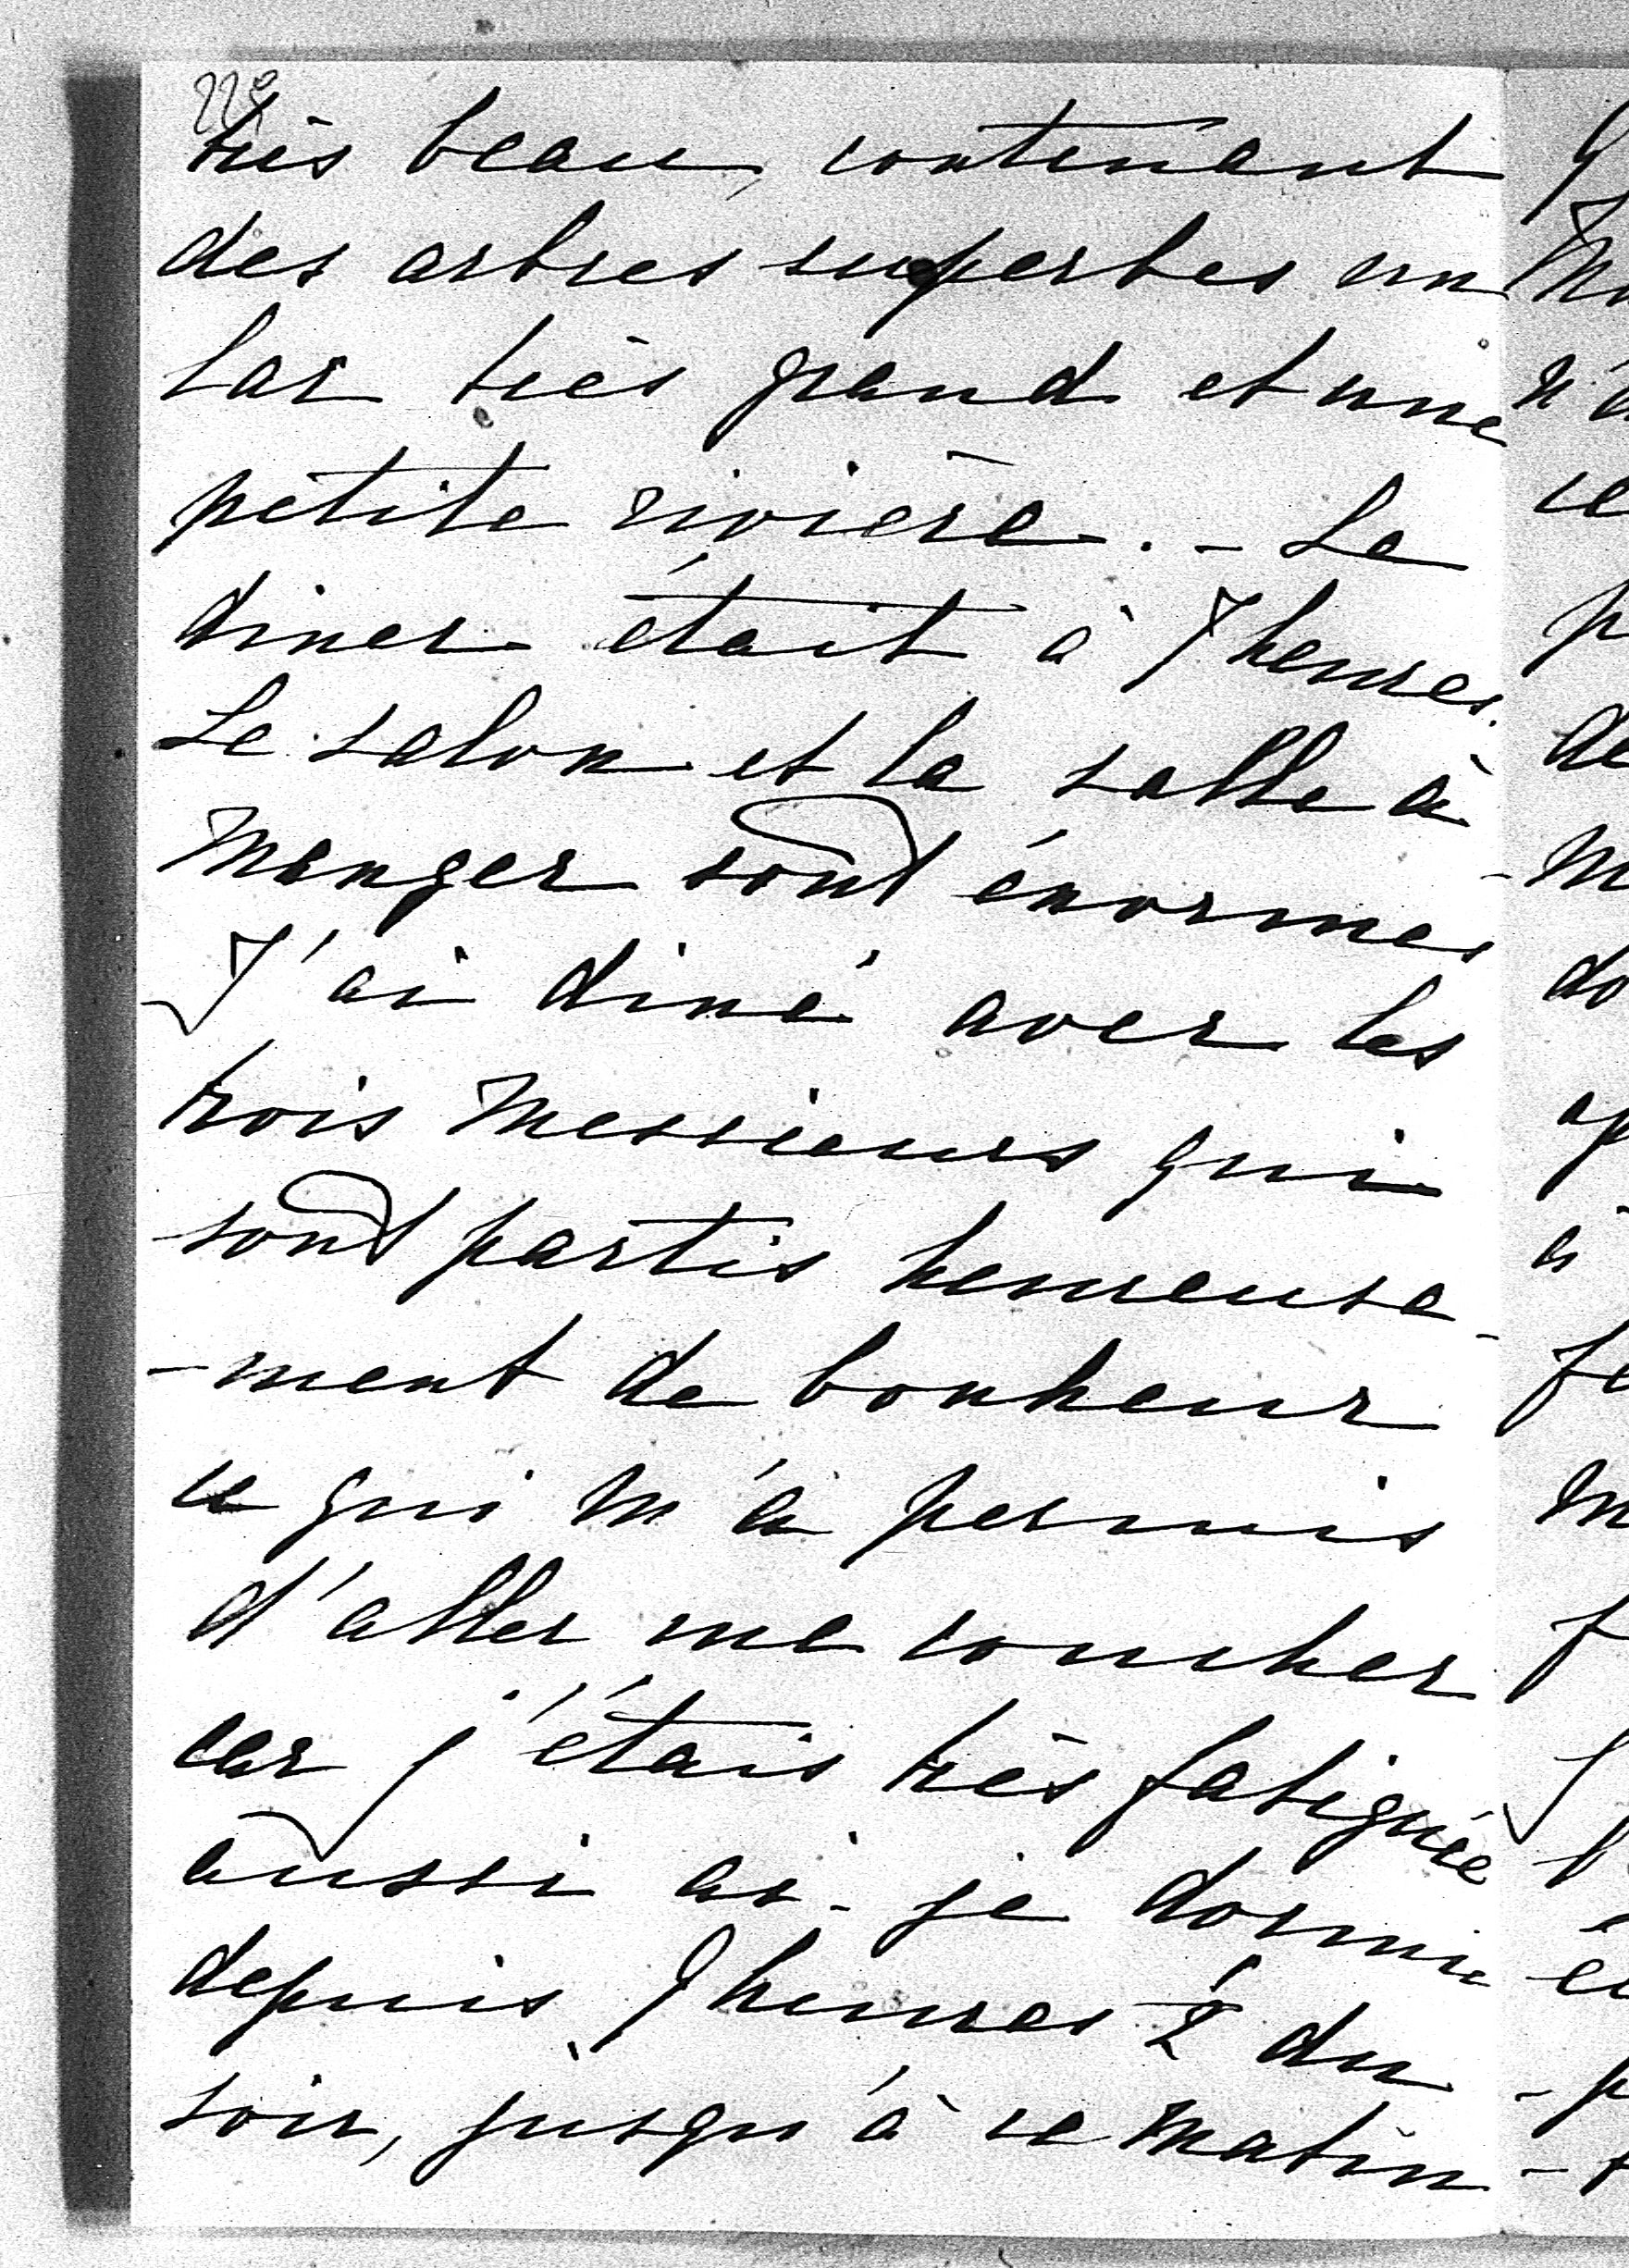 22e
très beau, contenant
des arbres superbes un
lac très grand et une
petite rivière. - Le
diner était à 7 heures.
Le salon et la salle à
manger sont énormes
J'ai diné avec les
trois messieurs qui
sont partis heureuse-
-ment de bonheur
ce qui m'a permis
d'aller me coucher
car j'étais très fatiguée
aussi ai-je dormi
depuis 9 heures ½ du
soir, jusqu'à ce matin